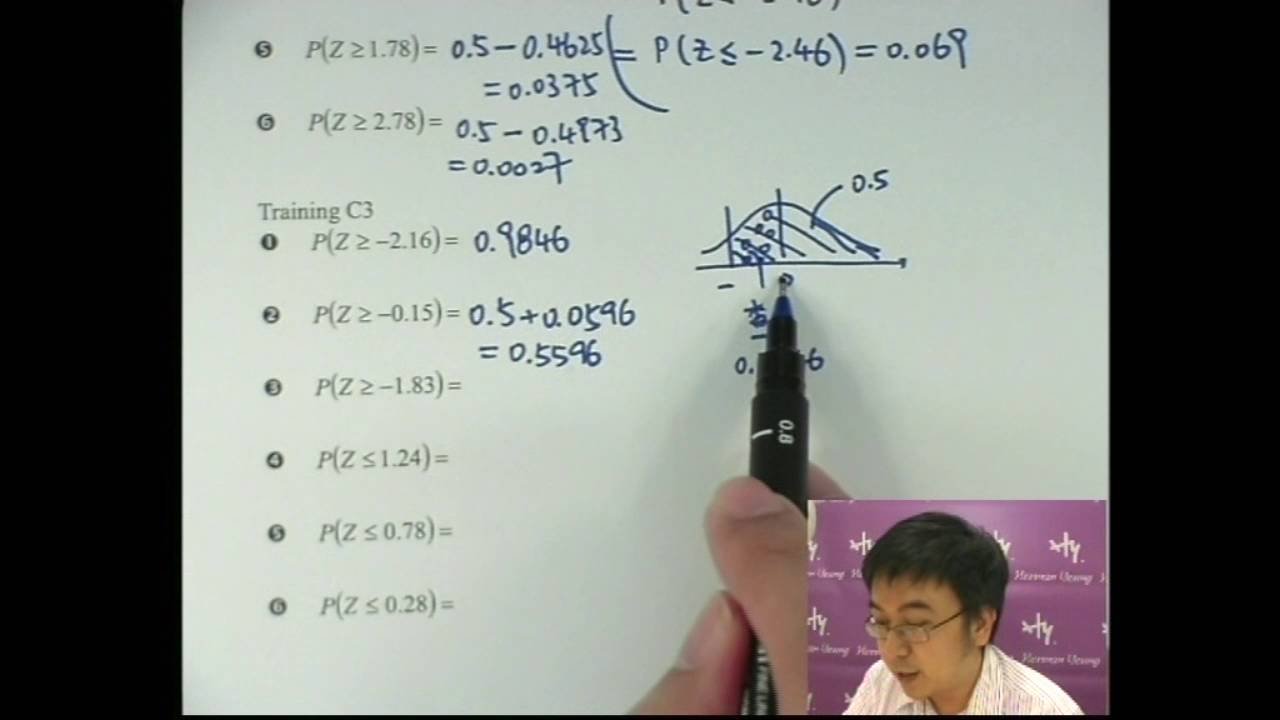 ❺ P(Z ≥ 1.78) = 0.5 − 0.4625 = P(Z ≤ −2.46) = 0.069
= 0.0375
❻ P(Z ≥ 2.78) = 0.5 − 0.4973
= 0.0027
0.5
Training C3
❶ P(Z ≥ −2.16) = 0.9846
−
0
❷ P(Z ≥ −0.15) = 0.5 + 0.0596
= 0.5596
❸ P(Z ≥ −1.83) =
❹ P(Z ≤ 1.24) =
❺ P(Z ≤ 0.78) =
❻ P(Z ≤ 0.28) =
0.8
Herman Yeung
Herman Yeung